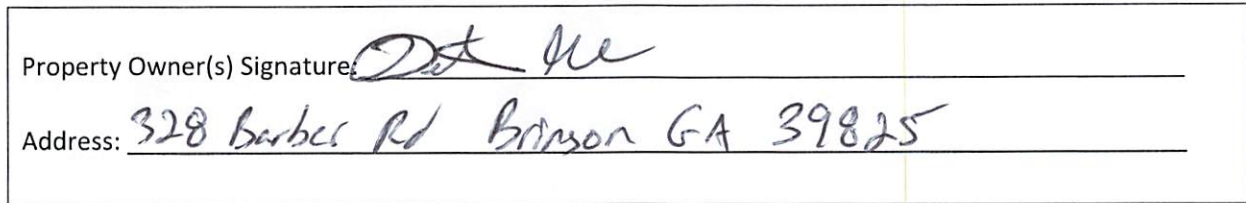 Property Owner(s) Signature:
Address: 328 Barber Rd Brinson GA 39825